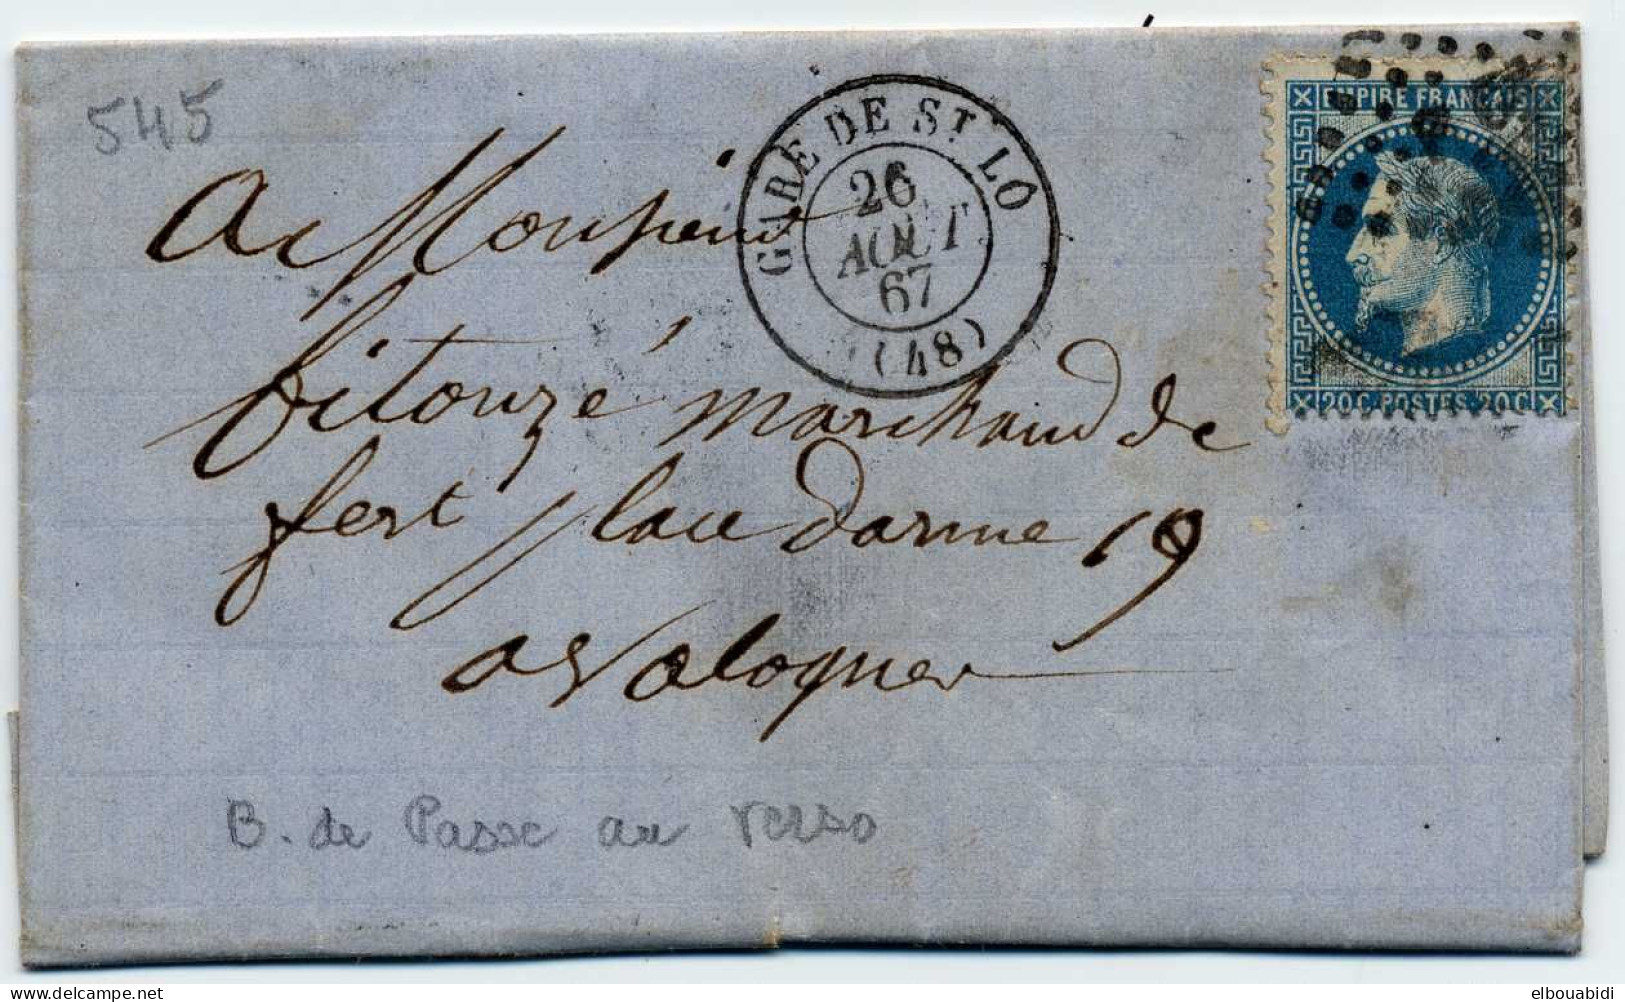 545
GARE DE ST LÔ
26
AOUT
67
(48)
EMPIRE FRANÇAIS
20C POSTES 20C
A Monsieur
bitouzé marchand de
fert place darme 19
a Valognes
B. de Passe au verso
delcampe.net
elbouabidi